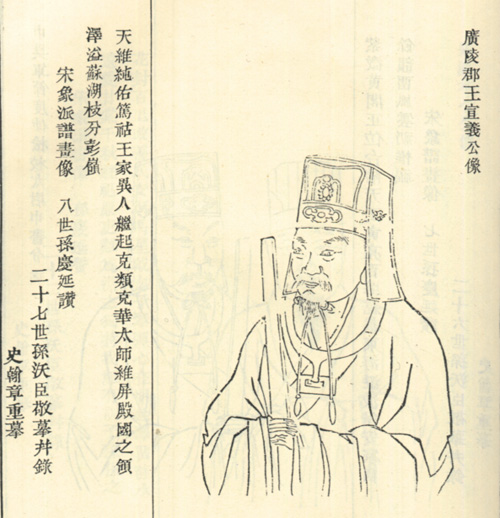 廣陵郡王宣義公像
天維純佑篤祜王家異人繼起克類克華太師維屏殿國之領
澤溢蘇湖枝分彭嶺
宋象派譜畫像 八世孫慶延讚
二十七世孫沃臣敬摹幷錄
史翰章重摹